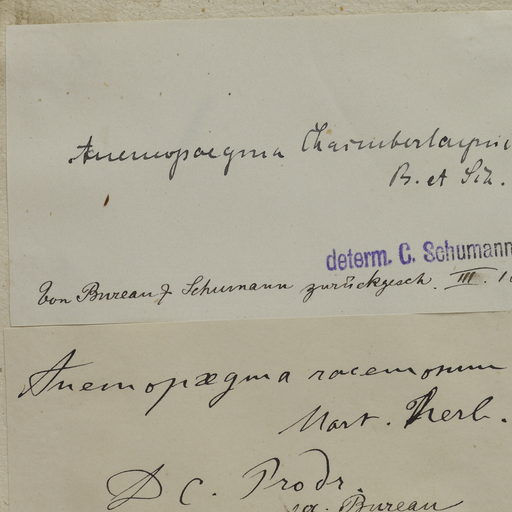 Anemopaegma Chamberlaynii
B. et Sch.
determ. C. Schumann
Von Bureau & Schumann zurückgesch. III. 1
Anemopægma racemosum
Mart. Herb.
D C. Prodr.
Bureau